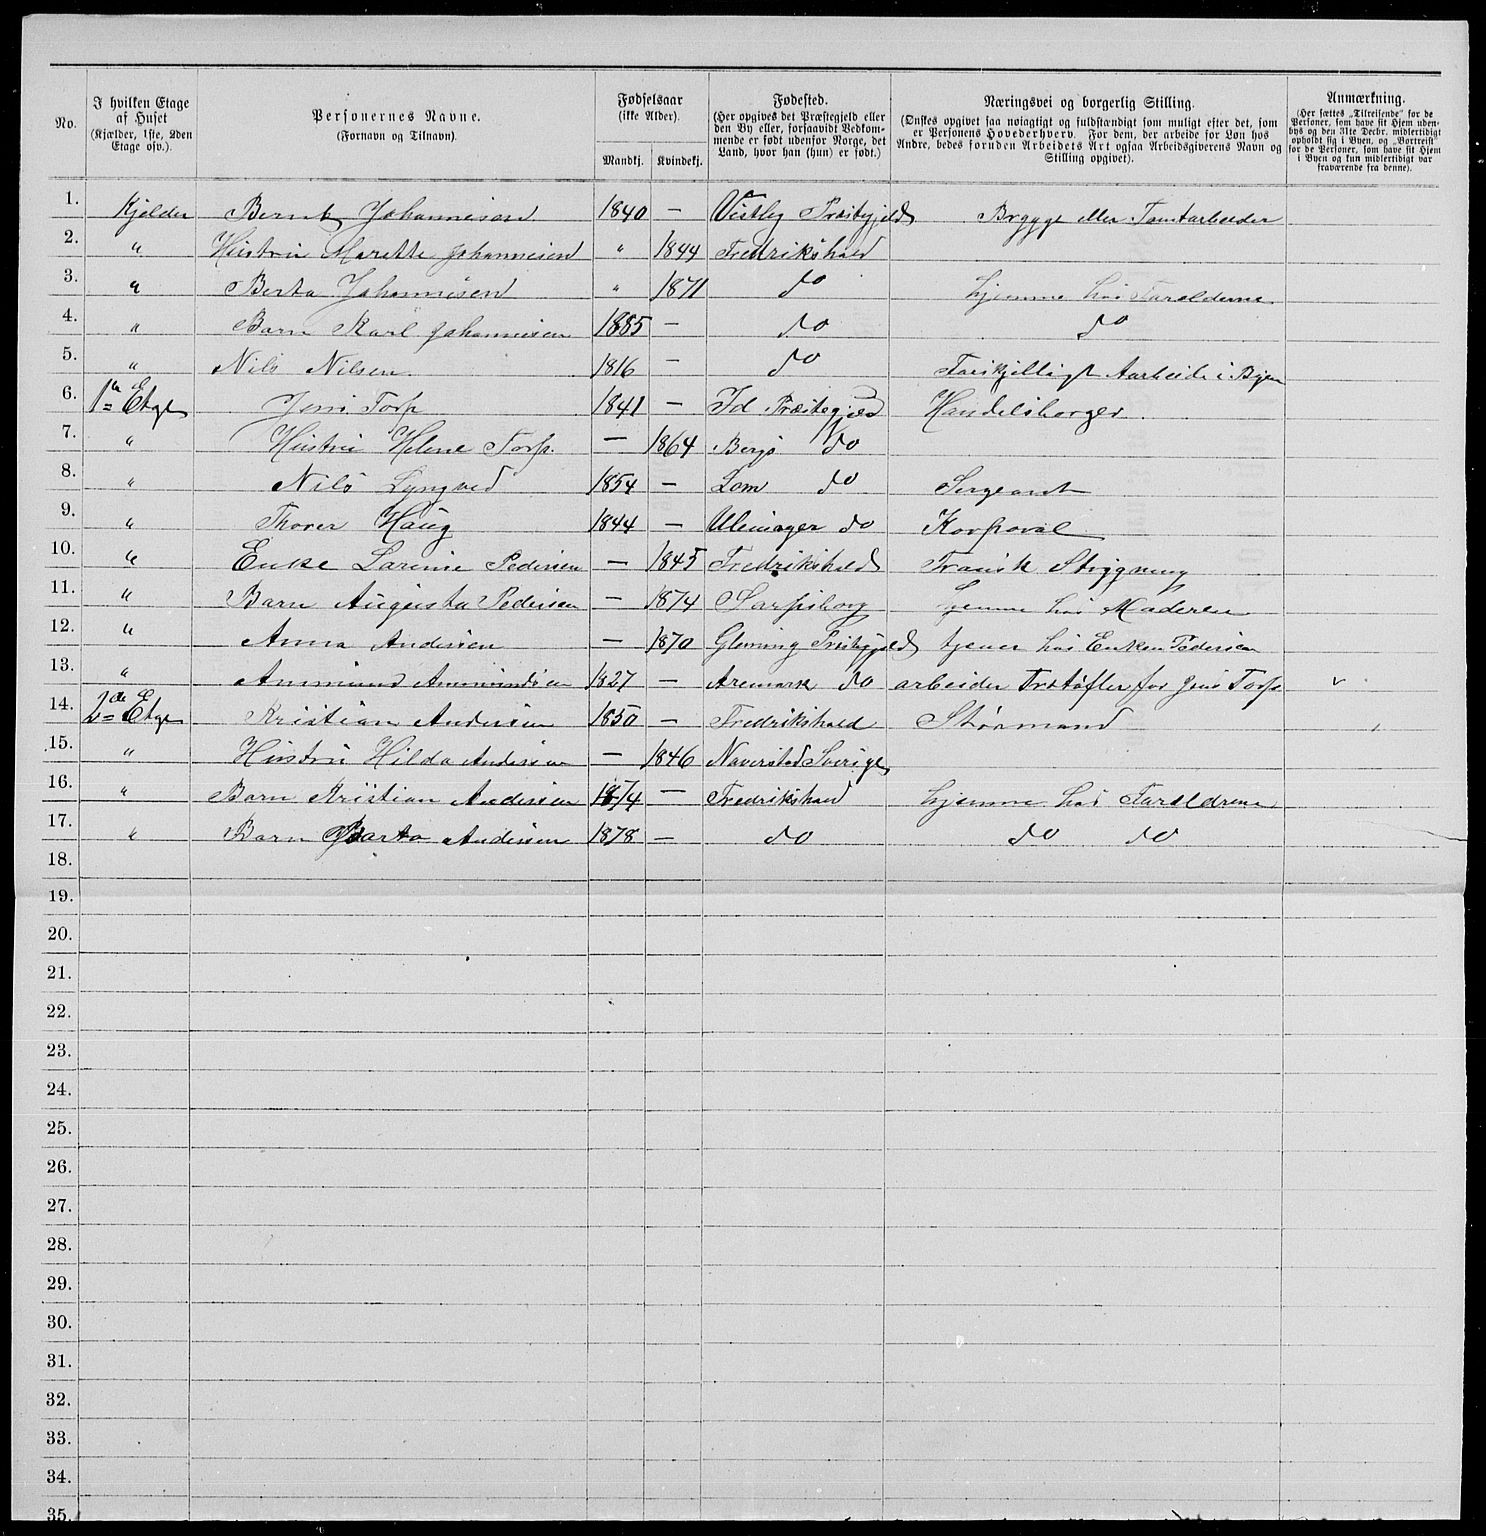 No.
I hvilken Etage
af Huset
(Kjælder, 1ste, 2den
Etage osv.).
Personernes Navne.
(Fornavn og Tilnavn).
Fødselsaar
(ikke Alder).
Mandkj. Kvindekj.
Fødested.
(Her opgives det Præstegjeld eller
den By eller, forsaavidt Vedkom-
mende er født udenfor Norge, det
Land, hvor han (hun) er født.)
Næringsvei og borgerlig Stilling.
(Ønskes opgivet saa nøiagtigt og fuldstændigt som muligt efter det, som
er Personens Hovederhverv. For dem, der arbeide for Løn hos
Andre, bedes foruden Arbeidets Art ogsaa Arbeidsgiverens Navn og
Stilling opgivet).
Anmærkning.
(Her sættes „Tilreisende" for de
Personer, som have sit Hjem uden-
bys og den 31te Decbr. midlertidigt
opholdt sig i Byen, og „Bortreist"
for de Personer, som have sit Hjem
i Byen og kun midlertidigt var
fraværende fra denne).
1. Kjelder Bernt Johannesen 1840 — Vestby Præstegjeld Brygge eller Tomtarbeider
2. " Hustru Marette Johannesen " 1844 Fredrikshald
3. " Berta Johannesen " 1871 do hjemme hos Foralderne
4. " Barn Karl Johannesen 1885 — do do
5. " Nils Nilsen 1816 — do Forskjelligt Aarbeide i Byen
6. 1ste Etge Jens Torp 1841 — Id Præstegjeld Handelsborger
7. " Hustru Helene Torp. — 1864 Berg do
8. " Nils Lyngved 1854 — Lom do Sergeant
9. " Thorer Haug 1844 — Ulensager do Korporal
10. " Enke Larine Pedersen — 1845 Fredrikshald Fransk Strygning
11. " Barn Augusta Pedersen — 1874 Sarpsborg hjemme hos Moderen
12. " Anna Andersen — 1870 Glemming Prestegjeld tjener hos Enken Pedersen
13. " Ammund Ammundsen 1827 — Aremark do arbeider Trætøfler for Jens Torp
14. 2de Etge Kristian Andersen 1850 — Fredrikshald Størmand
15. " Hustru Hilda Andersen — 1846 Naverstad Sverige
16. " Barn Kristian Andersen 1874 — Fredrikshald hjemme hos Foraldrene
17. " Barn Andersen 1878 — do do do
18.
19.
20.
21.
22.
23.
24.
25.
26.
27.
28.
29.
30.
31.
32.
33.
34.
35.